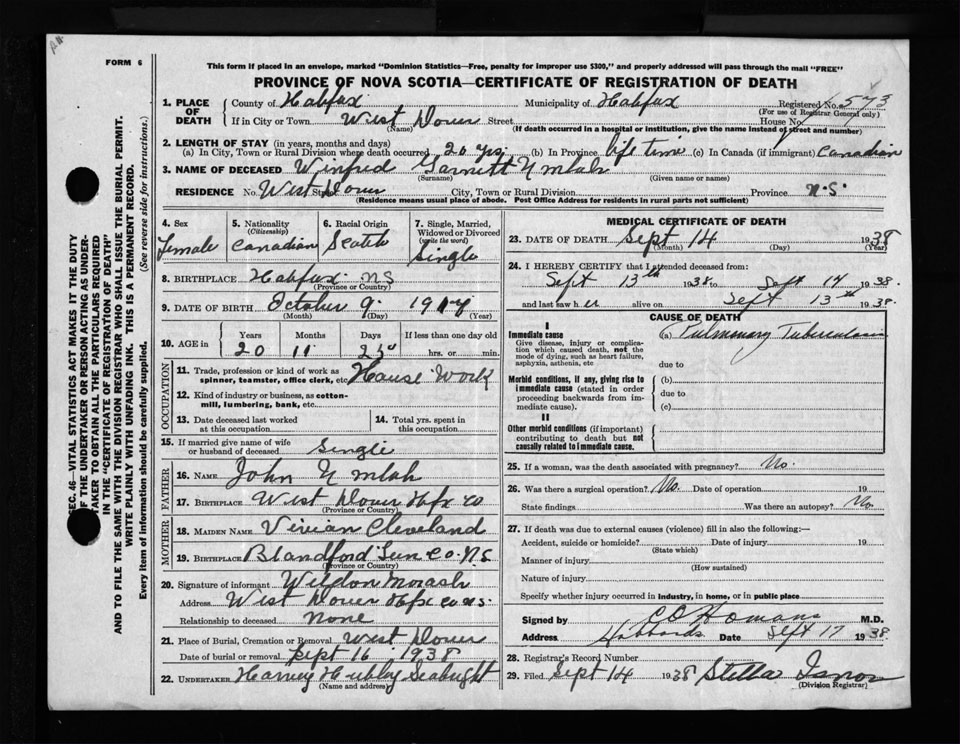 FORM 6
This form if placed in an envelope, marked "Dominion Statistics—Free, penalty for improper use $300," and properly addressed will pass through the mail "FREE"
PROVINCE OF NOVA SCOTIA—CERTIFICATE OF REGISTRATION OF DEATH
1. PLACE OF DEATH
County of Halifax Municipality of Halifax Registered No. 573
(For use of Registrar General only)
If in City or Town West Dover Street House No.
(Name) (If death occurred in a hospital or institution, give the name instead of street and number)
2. LENGTH OF STAY (in years, months and days)
(a) In City, Town or Rural Division where death occurred 20 yrs. (b) In Province life time (c) In Canada (if immigrant) Canadian
3. NAME OF DECEASED Winfred Garnett Umlah
(Surname) (Given name or names)
RESIDENCE No. West Dover Street City, Town or Rural Division Province N.S.
(Residence means usual place of abode. Post Office Address for residents in rural parts not sufficient)
4. Sex Female
5. Nationality (Citizenship) Canadian
6. Racial Origin Scotch
7. Single, Married, Widowed or Divorced (write the word) Single
8. BIRTHPLACE Halifax NS
(Province or Country)
9. DATE OF BIRTH October 9 1917
(Month) (Day) (Year)
10. AGE in Years 20 Months 11 Days If less than one day old hrs. or min.
OCCUPATION
11. Trade, profession or kind of work as spinner, teamster, office clerk, etc. House Work
12. Kind of industry or business, as cotton-mill, lumbering, bank, etc.
13. Date deceased last worked at this occupation
14. Total yrs. spent in this occupation
15. If married give name of wife or husband of deceased Single
FATHER
16. Name John Umlah
17. Birthplace West Dover Hfx Co
(Province or Country)
MOTHER
18. Maiden Name Vivian Cleveland
19. Birthplace Blandford Lun Co. N.S
(Province or Country)
20. Signature of informant Weldon Morash
Address West Dover Hfx Co NS.
Relationship to deceased None
21. Place of Burial, Cremation or Removal West Dover
Date of burial or removal Sept 16 1938
22. UNDERTAKER Harvey Hubley Seabright
(Name and address)
MEDICAL CERTIFICATE OF DEATH
23. DATE OF DEATH Sept 14 1938
(Month) (Day) (Year)
24. I HEREBY CERTIFY that I attended deceased from:
Sept 13th 1938 to Sept 14 1938.
and last saw her alive on Sept 13th 1938.
CAUSE OF DEATH
I
Immediate cause (a) Pulmonary Tuberculosis
Give disease, injury or complication which caused death, not the mode of dying, such as heart failure, asphyxia, asthenia, etc
due to
Morbid conditions, if any, giving rise to immediate cause (stated in order proceeding backwards from immediate cause).
(b)
due to
(c)
II
Other morbid conditions (if important) contributing to death but not causally related to immediate cause.
25. If a woman, was the death associated with pregnancy? No.
26. Was there a surgical operation? No. Date of operation 19
State findings Was there an autopsy? No.
27. If death was due to external causes (violence) fill in also the following:—
Accident, suicide or homicide? Date of injury 19
(State which)
Manner of injury
(How sustained)
Nature of injury
Specify whether injury occurred in industry, in home, or in public place
Signed by C O Homans M.D.
Address Hubbards Date Sept 17 1938.
28. Registrar's Record Number
29. Filed Sept 14 1938 Stella Isnor
(Division Registrar)
SEC. 46—VITAL STATISTICS ACT MAKES IT THE DUTY
OF THE UNDERTAKER OR PERSON ACTING AS UNDER-
TAKER TO OBTAIN ALL THE PARTICULARS REQUIRED
IN THE "CERTIFICATE OF REGISTRATION OF DEATH"
AND TO FILE THE SAME WITH THE DIVISION REGISTRAR WHO SHALL ISSUE THE BURIAL PERMIT.
WRITE PLAINLY WITH UNFADING INK. THIS IS A PERMANENT RECORD.
Every item of information should be carefully supplied. (See reverse side for instructions.)